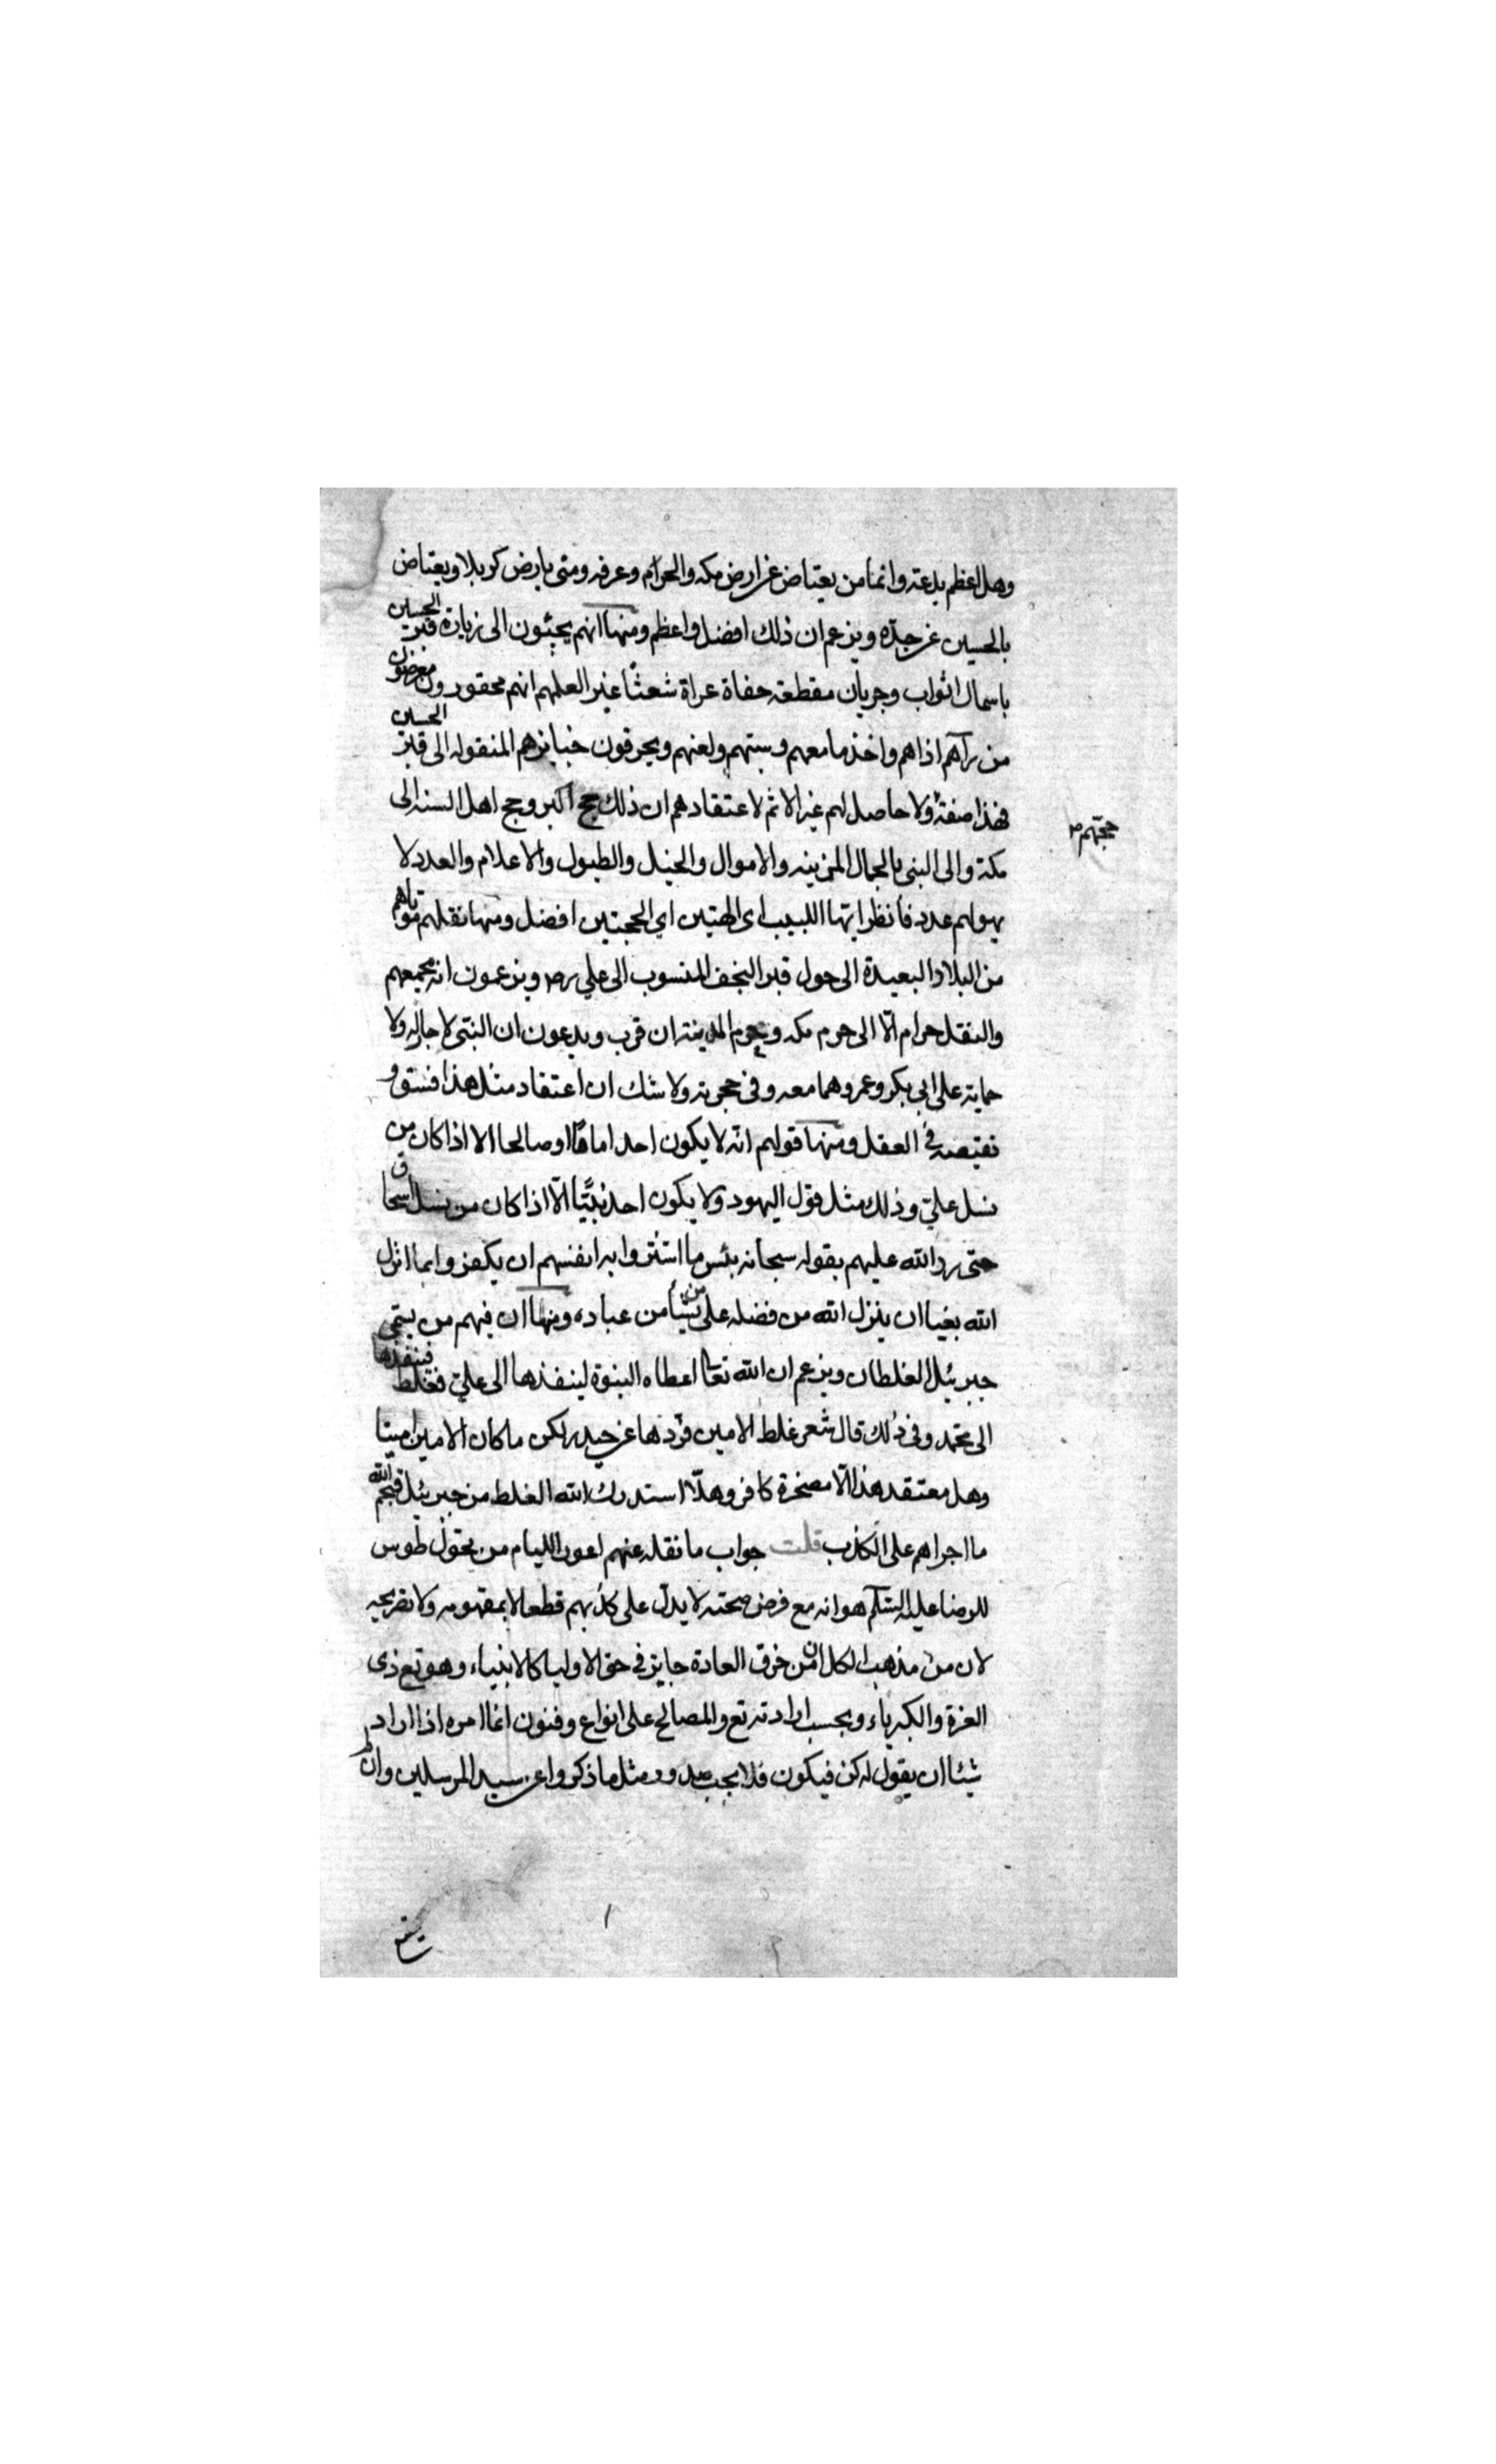 وهل اعظم بدعة وانما من يعتاض عن ارض مكه والحرام وعرفه ومنى بارض كربلا ويعتاض
بالحسين عن جده ويزعم ان ذلك افضل واعظم ومنها انهم يجيئون الى زيارة قبر الحسين
باسمال اثواب وجربان مقطعة حفاة عراة شعثا غبر العلمهم انهم محقورون مبغوضون
من رآهم اذاهم واخذ ما معهم وسبتهم ولعنهم ويحرقون جنايزهم المنقوله الى قبر الحسين
فهذا صفة ولا حاصل لهم غير الاثم لاعتقادهم ان ذلك حج اكبر وحج اهل السنه الى
حجتهم
مكة والى النبى بالجمال المزينه والاموال والخيل والطبول والاعلام والعدد لا
يهولهم عدد فانظر ايها اللبيب اى اي الحجتين افضل ومنها نقلهم موتاهم
من البلاد البعيدة الى حول قبر النجف المنسوب الى علي رض ويزعمون انه يحميهم
والنقل حرام الا الى حرم مكه وحرم المدينة ان قرب ويدعون ان النبى لا جاه له ولا
حماية على ابي بكر وعمر وهما معه وفى حجرته ولا شك ان اعتقاد مثل هذا فسق و
نقيصه في العقل ومنها قولهم انه لا يكون احد اماما او صالحا الا اذا كان من
نسل علي وذلك مثل قول اليهود ولا يكون احد نبيا الا اذا كان من نسل اسحاق
حتى رد الله عليهم بقوله سبحانه بئس ما اشتروا به انفسهم ان يكفروا بما انزل
الله بغيا ان ينزل الله من فضله على من يشأ من عباده ومنها ان فيهم من يسمى
جبرئيل الغلطان ويزعم ان الله تعا اعطاه النبوة لينفذها الى علي فغلط فنفذها
الى محمد وفى ذلك قال شعر غلط الامين فردها عن حيدر لكن ما كان الامين امينا
وهل معتقد هذا الا مسخرة كافر وهلا استدرك الله الغلط من جبرئيل قبحهم الله
ما اجراهم على الكذب قلت جواب ما نقله عنهم اعون الليام من تحول طوس
للرضا عليه السلم هو انه مع فرض صحته لا يدل على كذبهم قطعا لا بمفهومه ولا تصريحه
لان من مذهب الكل ان من خرق العادة جايز في حق الاوليا كالانبياء وهو تع ذى
العزة والكبرياء وبحسب ارادته تع والمصالح على انواع وفنون انما امره اذا اراد
شيئا ان يقول له كن فيكون فلا يجب صدور مثل ما ذكروا عن سيد المرسلين وان